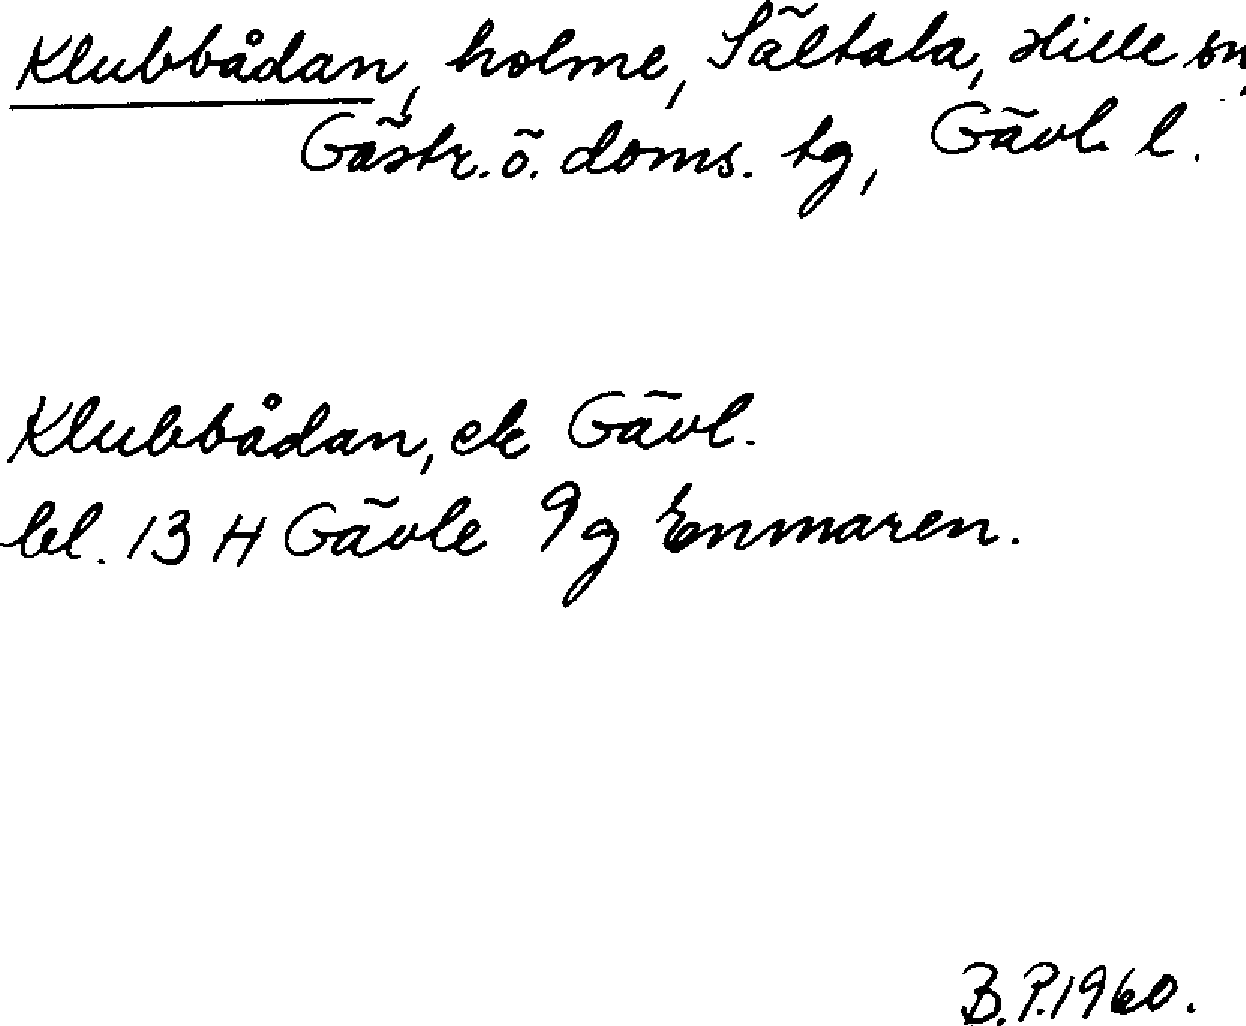 Klubbådan, holme, Sältala, Hille sn,
Gästr. ö. doms. tg, Gävl. l.
Klubbådan, ek Gävl.
bl. 13 H Gävle 9g Enmaren.
B.P. 1960.